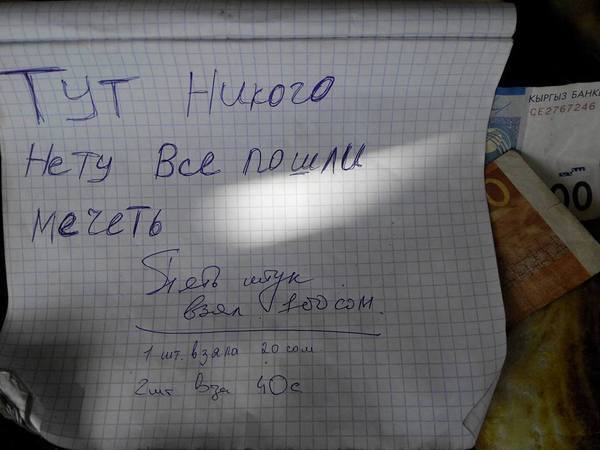 Тут Никого
Нету Все пошли
мечеть
5пять штук
взял 100 сом.
1 шт. взяла 20 сом
2шт вза 40с
КЫРГЫЗ БАНК
СЕ2767246
00